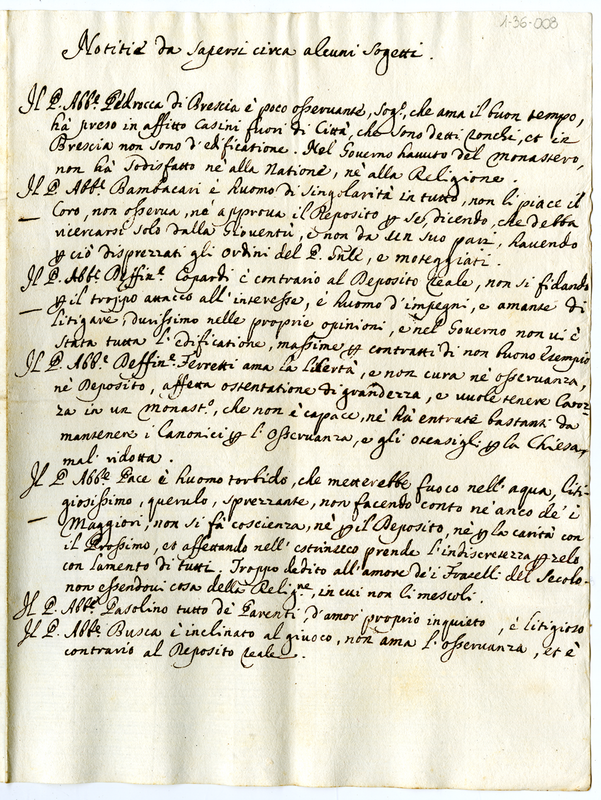 1-36-003
Notitie da sapersi circa alcuni sogetti.
Il P. Abb.e Pedrocca di Brescia è poco osservante, sog.o, che ama il buon tempo,
hà preso in affitto Casini fuori di Città, che sono detti ronchi, et in
Brescia non sono d'edificatione. Nel Governo havuto del monastero,
non hà sodisfatto nè alla Natione, nè alla Religione.
Il P. Abb.e Bambacari è huomo di singolarità in tutto, non li piace il
Coro, non osserva, nè approva il Deposito p se, dicendo, che debba
ricercarsi solo dalla Gioventù, e non da un suo pari, havendo
p ciò disprezzati gli ordini del P. , e moteggiati.
Il P. Abb.e Beffin.e Cepardi è contrario al Deposito reale, non si fidando
p il troppo attacco all'interesse, è huomo d'impegni, e amante di
litigare, durissimo nelle proprie opinioni, e nel Governo non vi è
stata tutta l'edificatione, massime p contratti di non buono Esempio
Il P. Abb.e Beffin.e Ferretti ama la libertà, e non cura nè osservanza,
nè Deposito, affetta ostentatione di grandezza, e vuole tenere Caroz-
za in un Monast.o, che non è capace, nè hà entrate bastanti da
mantenere i Canonici p l'Osservanza, e gli p la Chiesa,
mal ridotta.
Il P. Abb.e Pace è huomo torbido, che metterebbe fuoco nell'aqua, liti-
giosissimo, querulo, sprezzante, non facendo conto nè anco de' i
Maggiori, non si fà coscienza, nè p il Deposito, nè p la carità con
il Prossimo, et affettando nell'estrinseco prende l'indiscretezza p zelo
con lamento di tutti. Troppo dedito all'amore de' i Fratelli del Secolo
non essendovi cosa della Relig.ne, in cui non li mescoli.
Il P. Abb.e Pasolino tutto de' Parenti, d'amor proprio inquieto, è litigioso
Il P. Abb.e Busca è inclinato al giuoco, non ama l'osservanza, et è
contrario al Deposito reale.